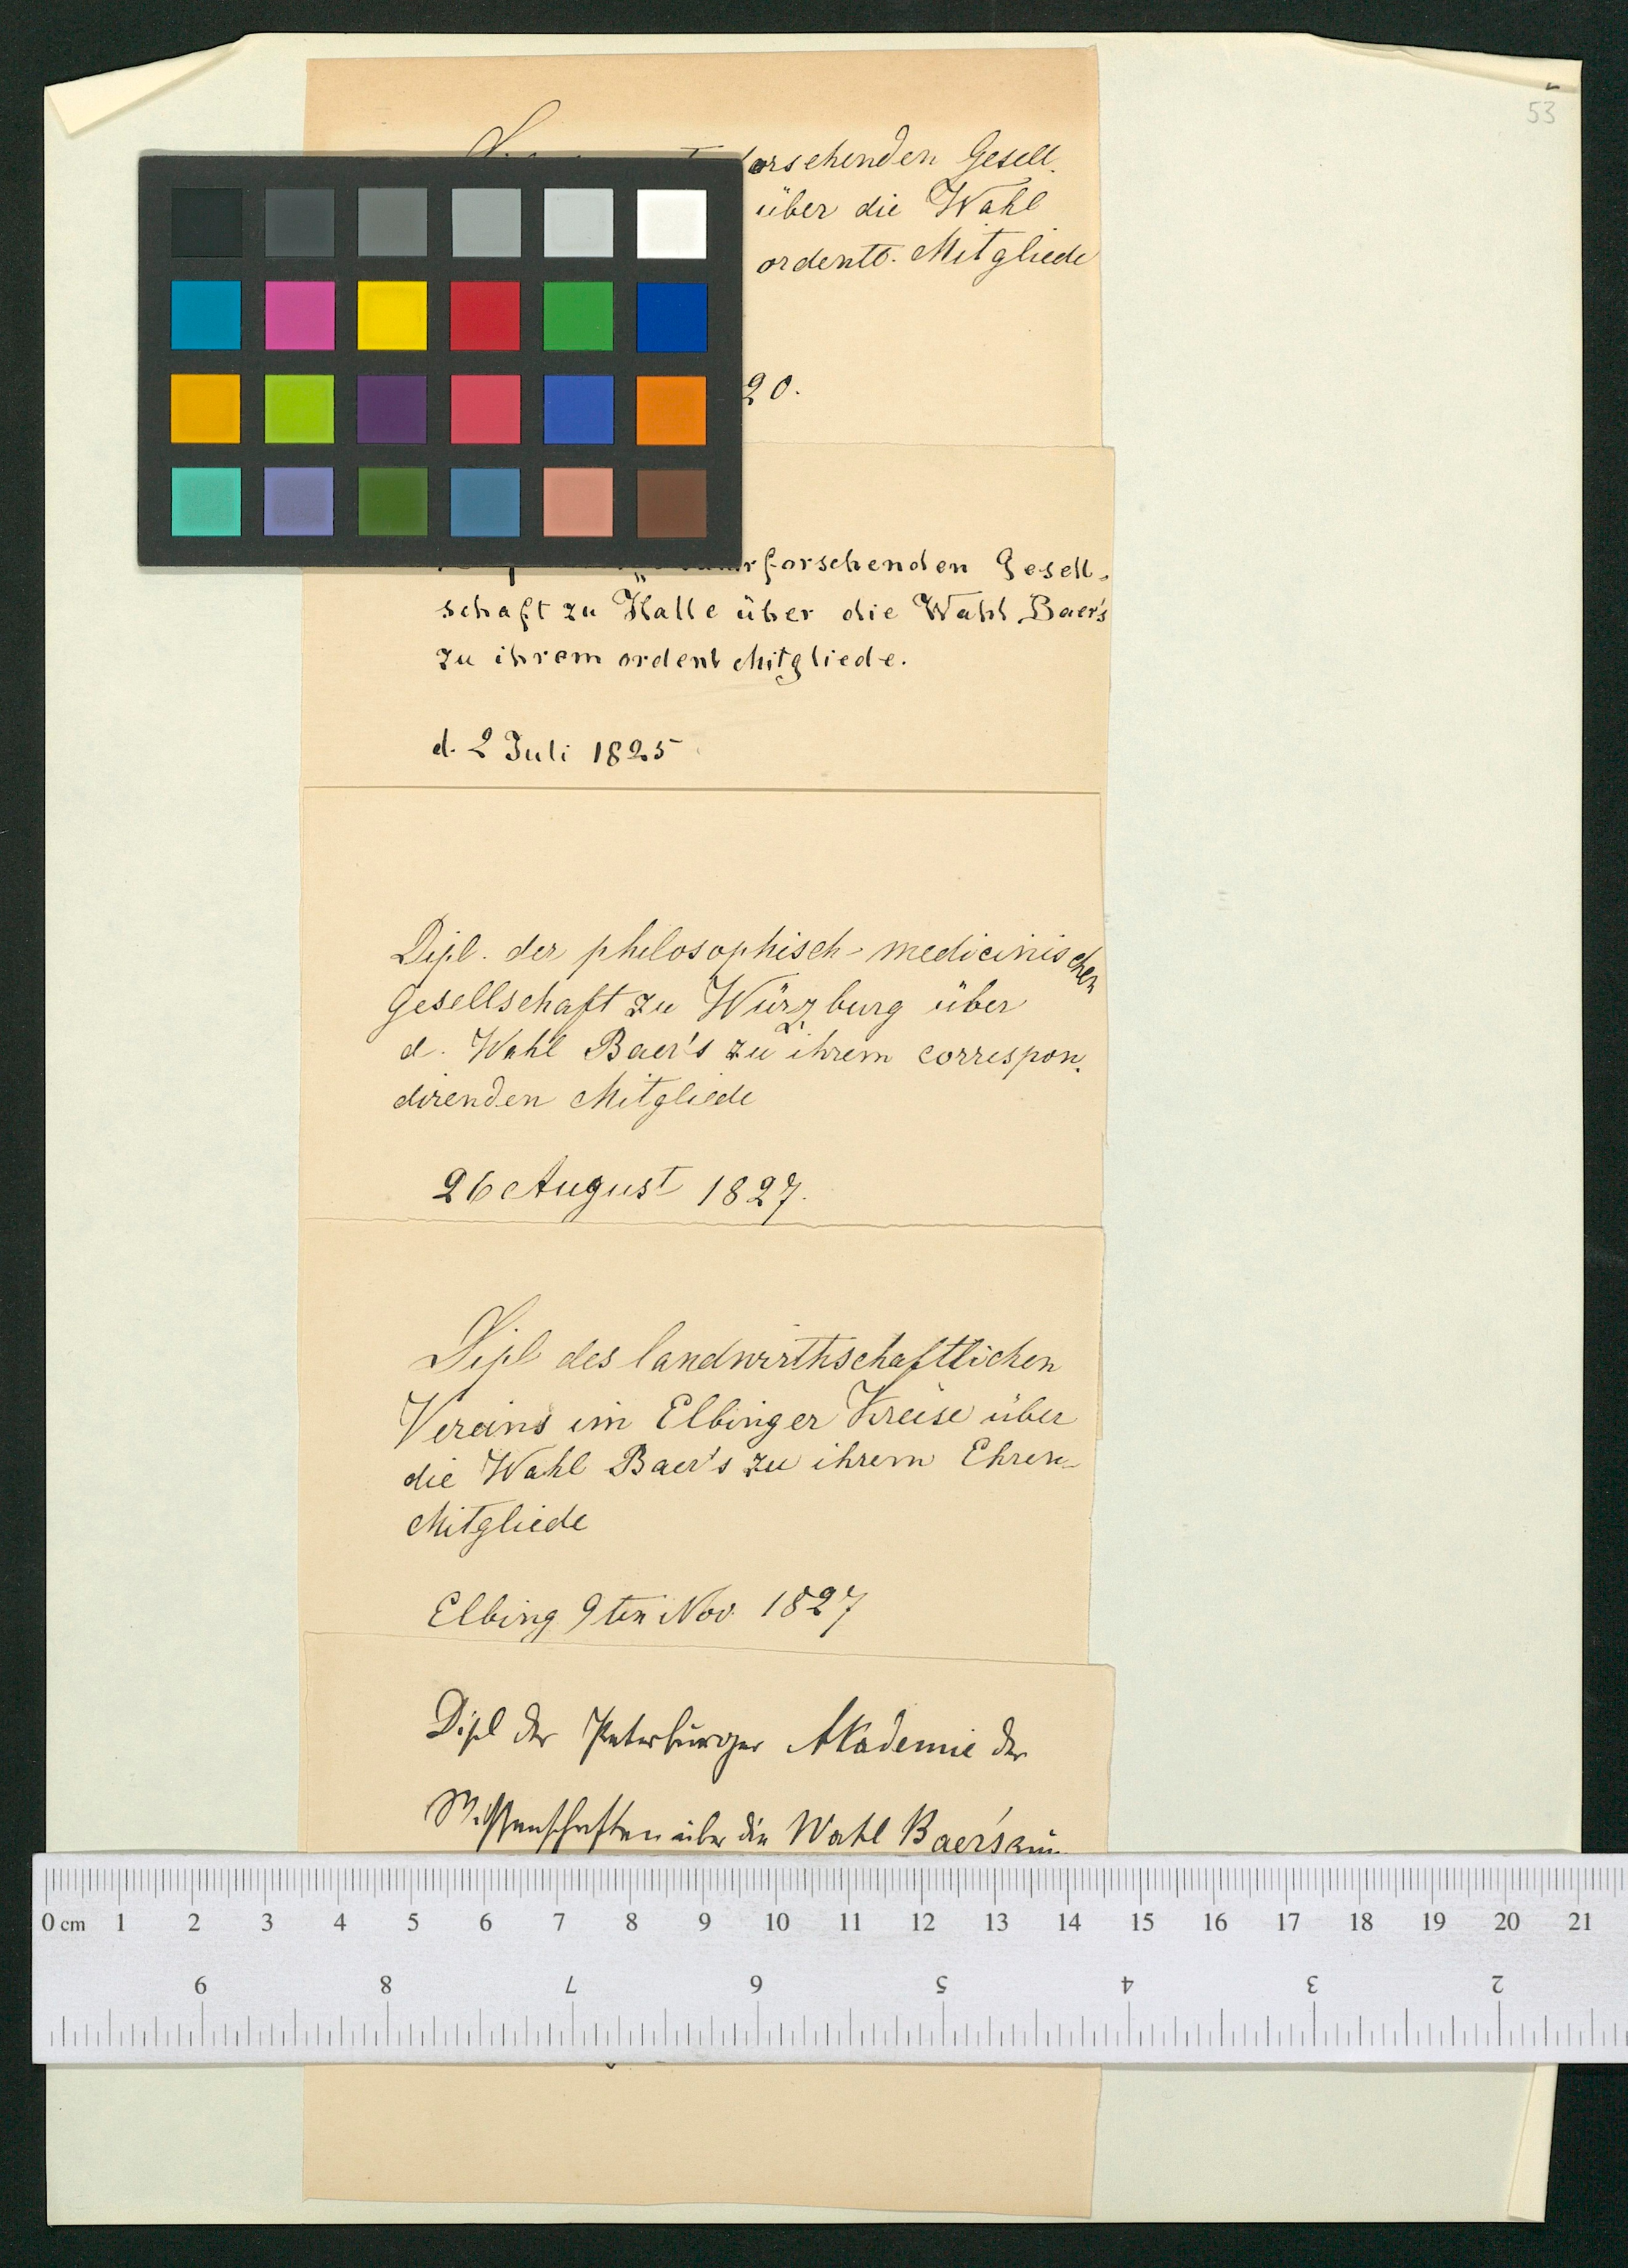 53
forschenden Gesell.
über die Wahl
ordentl. Mitgliede
20.
forschenden Gesell-
schaft zu Halle über die Wahl Baer's
zu ihrem ordentl Mitgliede.
d. 2 Juli 1825
Dipl. der philosophisch-medicinischen
Gesellschaft zu Würzburg über
d. Wahl Baer's zu ihrem correspon-
direnden Mitgliede
26 August 1827.
Dipl des landwirthschaftlichen
Vereins im Elbinger Kreise über
die Wahl Baer's zu ihrem Ehren-
Mitgliede
Elbing 9ten Nov. 1827
Dipl der Petersburger Akademie der
Wissenschaften über die Wahl Baer's zum
0 cm 1 2 3 4 5 6 7 8 9 10 11 12 13 14 15 16 17 18 19 20 21
9 8 7 6 5 4 3 2